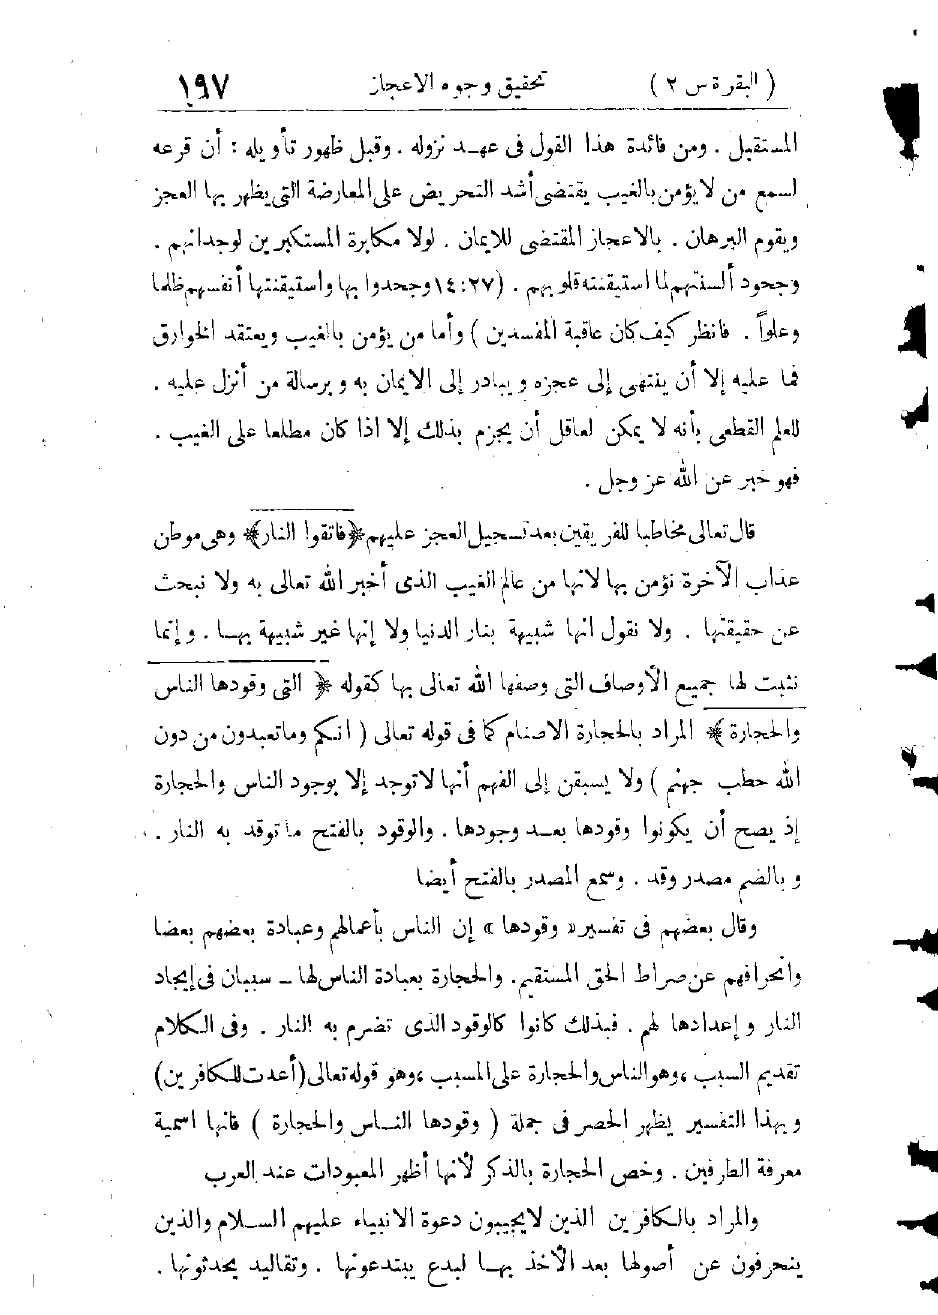 ( البقرة س ٢ ) تحقيق وجوه الاعجاز ١٩٧
المستقبل . ومن فائدة هذا القول فى عهد نزوله . وقبل ظهور تأويله : أن قرعه
لسمع من لا يؤمن بالغيب يقتضى أشد التحريض على المعارضة التى يظهر بها العجز
ويقوم البرهان . بالاعجاز المقتضى للايمان . لولا مكابرة المستكبرين لوجدانهم .
وجحود ألسنتهم لما استيقنته قلوبهم . (١٤:٢٧ وجحدوا بها واستيقنتها أنفسهم ظلما
وعلواً . فانظر كيف كان عاقبة المفسدين ) وأما من يؤمن بالغيب ويعتقد الخوارق
فما عليه إلا أن ينتهى إلى عجزه ويبادر إلى الايمان به وبرسالة من أنزل عليه .
للعلم القطعى بأنه لا يمكن لعاقل أن يجزم بذلك إلا اذا كان مطلعا على الغيب .
فهو خبر عن الله عز وجل .
قال تعالى مخاطبا للفريقين بعد تسجيل العجز عليهم ﴿فاتقوا النار﴾ وهى موطن
عذاب الآخرة نؤمن بها لانها من عالم الغيب الذى أخبر الله تعالى به ولا نبحث
عن حقيقتها . ولا نقول انها شبيهة بنار الدنيا ولا إنها غير شبيهة بها . وإنما
نثبت لها جميع الأوصاف التى وصفها الله تعالى بها كقوله ﴿ التى وقودها الناس
والحجارة ﴾ المراد بالحجارة الاصنام كما فى قوله تعالى ( انكم وما تعبدون من دون
الله حطب جهنم ) ولا يسبقن إلى الفهم أنها لا توجد إلا بوجود الناس والحجارة
إذ يصح أن يكونوا وقودها بعد وجودها . والوقود بالفتح ما توقد به النار .
وبالضم مصدر وقد . وسمع المصدر بالفتح أيضا
وقال بعضهم فى تفسير « وقودها » إن الناس بأعمالهم وعبادة بعضهم بعضا
وانحرافهم عن صراط الحق المستقيم . والحجارة بعبادة الناس لها ــ سببان فى إيجاد
النار وإعدادها لهم . فبذلك كانوا كالوقود الذى تضرم به النار . وفى الكلام
تقديم السبب ، وهو الناس والحجارة على المسبب ، وهو قوله تعالى (أعدت للكافرين)
وبهذا التفسير يظهر الحصر فى جملة ( وقودها الناس والحجارة ) فانها اسمية
معرفة الطرفين . وخص الحجارة بالذكر لأنها أظهر المعبودات عند العرب
والمراد بالكافرين الذين لا يجيبون دعوة الانبياء عليهم السلام والذين
ينحرفون عن أصولها بعد الأخذ بها لبدع يبتدعونها . وتقاليد يحدثونها .